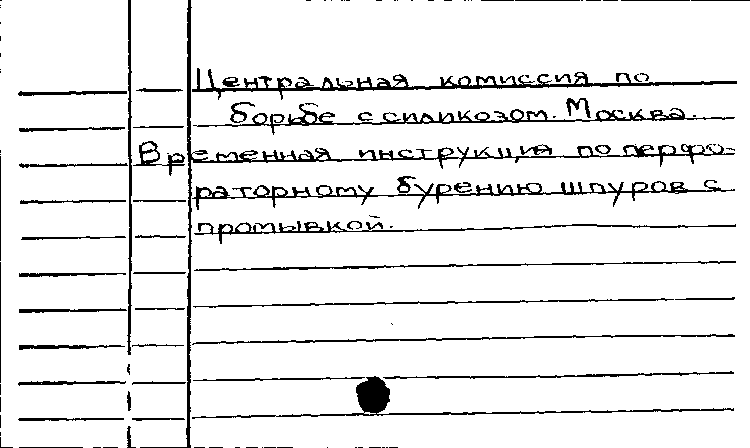 Центральная комиссия по
борьбе с силикозом. Москва.
Временная инструкция по перфо-
раторному бурению шпуров с
промывкой.